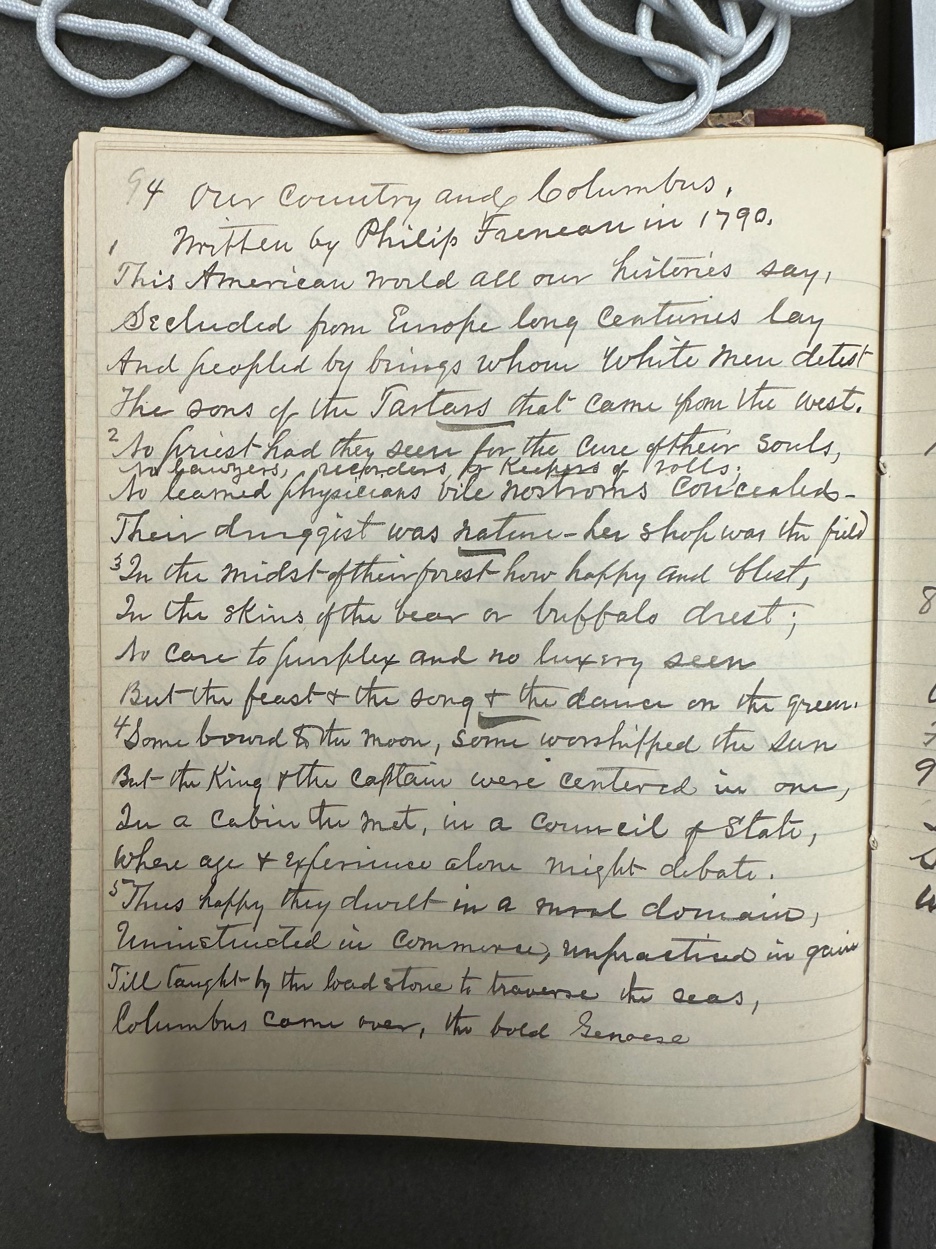 94 Our Country and Columbus.
Written by Philip Freneau in 1790.
1
This American world all our histories say,
Secluded from Europe long Centuries lay
And peopled by beings whom White Men detest
The sons of the Tartars that came from the west.
2 No priest had they seen for the cure of their souls,
No lawyers, recorders, or Keepers of rolls;
No learned physicians vile nostroms concealed-
Their druggist was nature - her shop was the field
3 In the midst of their forest how happy and blest,
In the skins of the bear or buffalo drest;
No care to purplex and no luxery seen
But the feast & the song & the dance on the green.
4 Some bowed to the moon, some worshipped the sun
But the King & the Captain were centered in one,
In a cabin the met, in a Council of State,
Where age & experience alone might debate.
5 Thus happy they dwelt in a rural domain,
Uninstructed in commerce, unpractised in gain
Till taught by the loadstone to traverse the seas,
Columbus came over, the bold Genoese
8
7
9